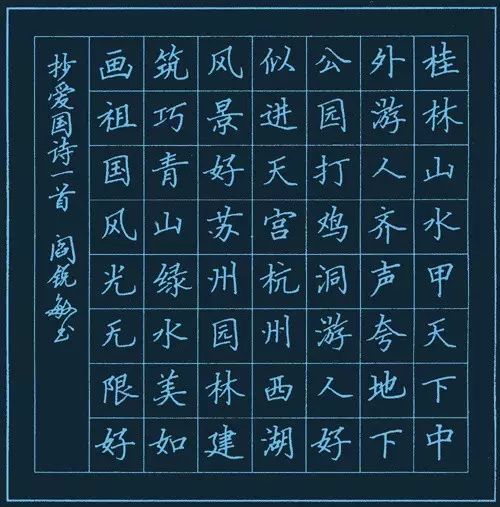 桂林山水甲天下中
外游人齐声夸地下
公园打鸡洞游人好
似进天宫杭州西湖
风景好苏州园林建
筑巧青山绿水美如
画祖国风光无限好
抄爱国诗一首 阎锐敏书